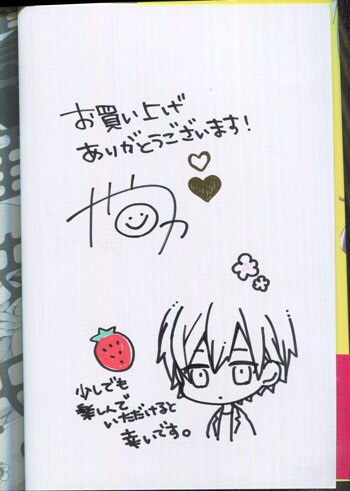 お買い上げ
ありがとうございます!
少しでも
楽しんで
いただけると
幸いです。